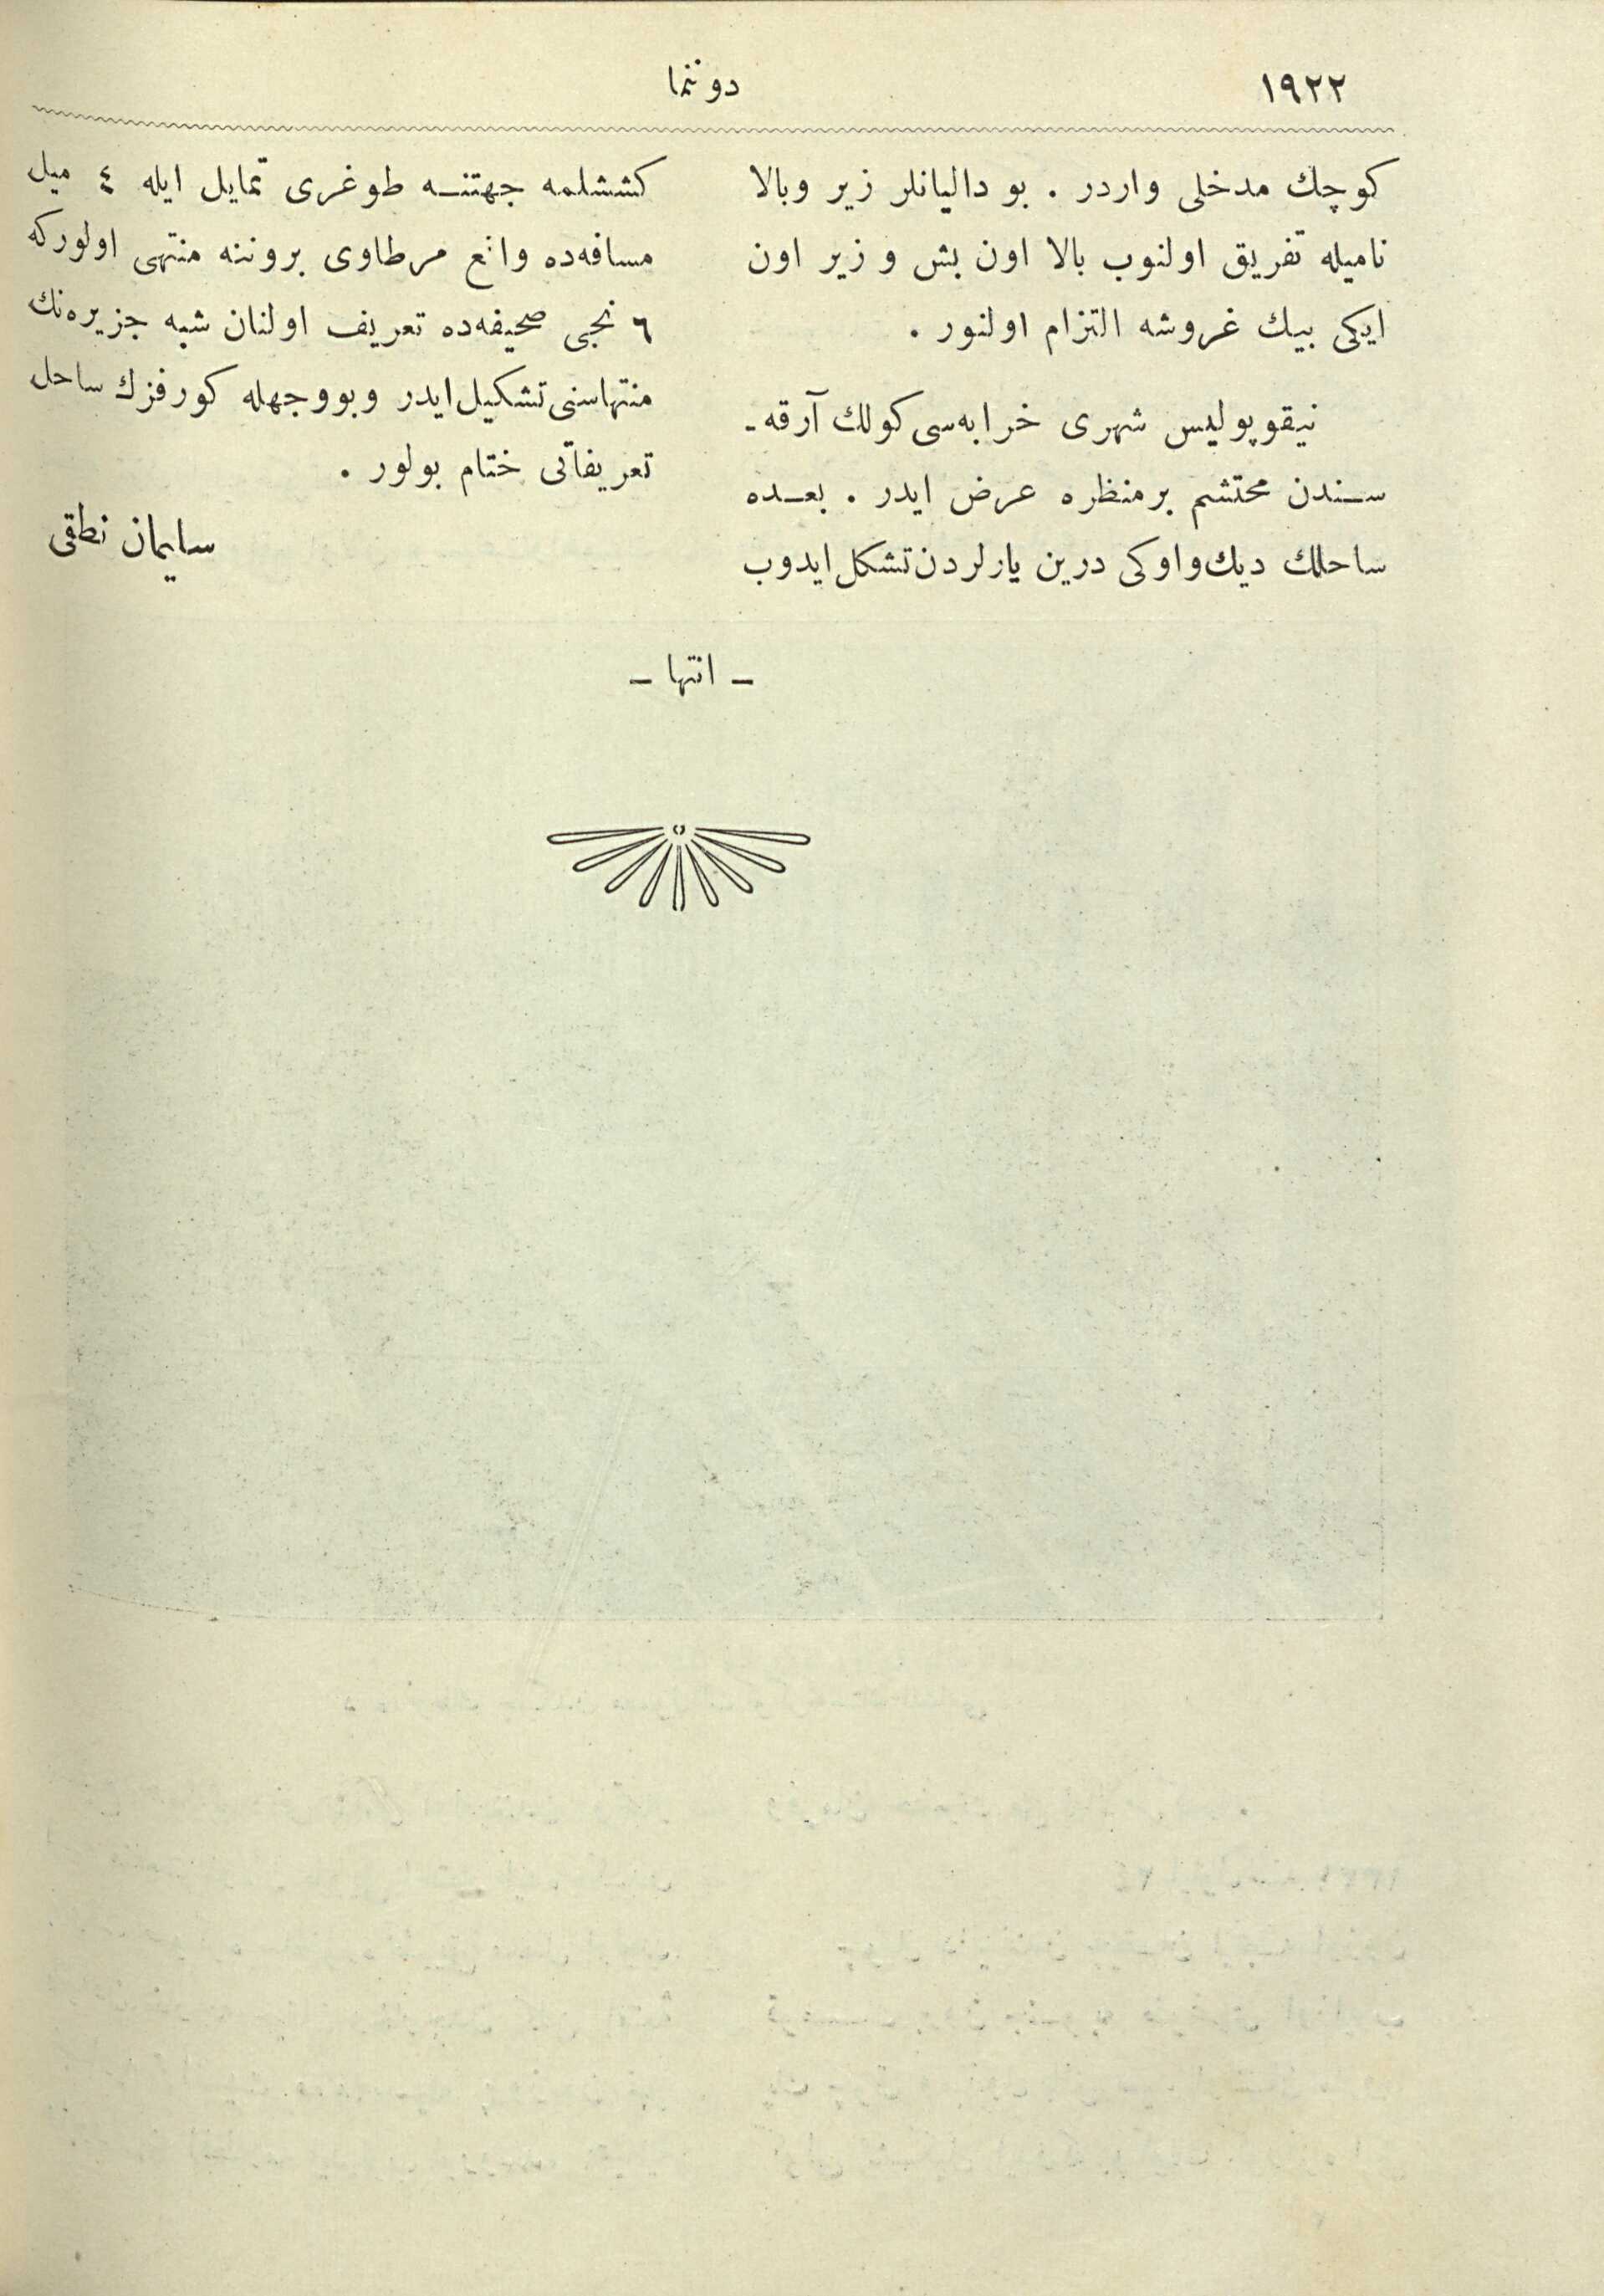 ١٩٢٢
دوننما
كوچك مدخلی واردر . بو داليانلر زير وبالا
ناميله تفريق اولنوب بالا اون بش و زير اون
ايكی بيك غروشه التزام اولنور .
نيقوپوليس شهری خرابه‌سی كولك آرقه ـ
سـندن محتشم برمنظره عرض ايدر . بعـده
ساحلك ديك واوكی درين يارلردن تشكل ايدوب
كششلمه جهتنـه طوغری تمايل ايله ٤ ميل
مسافه‌ده واقع مرطاوی بروننه منتهی اولوركه
٦ نجی صحيفه‌ده تعريف اولنان شبه جزيره‌نك
منتهاسنی تشكيل ايدر وبووجهله كورفزك ساحل
تعريفاتی ختام بولور .
سليمان نطقی
ـ انتها ـ